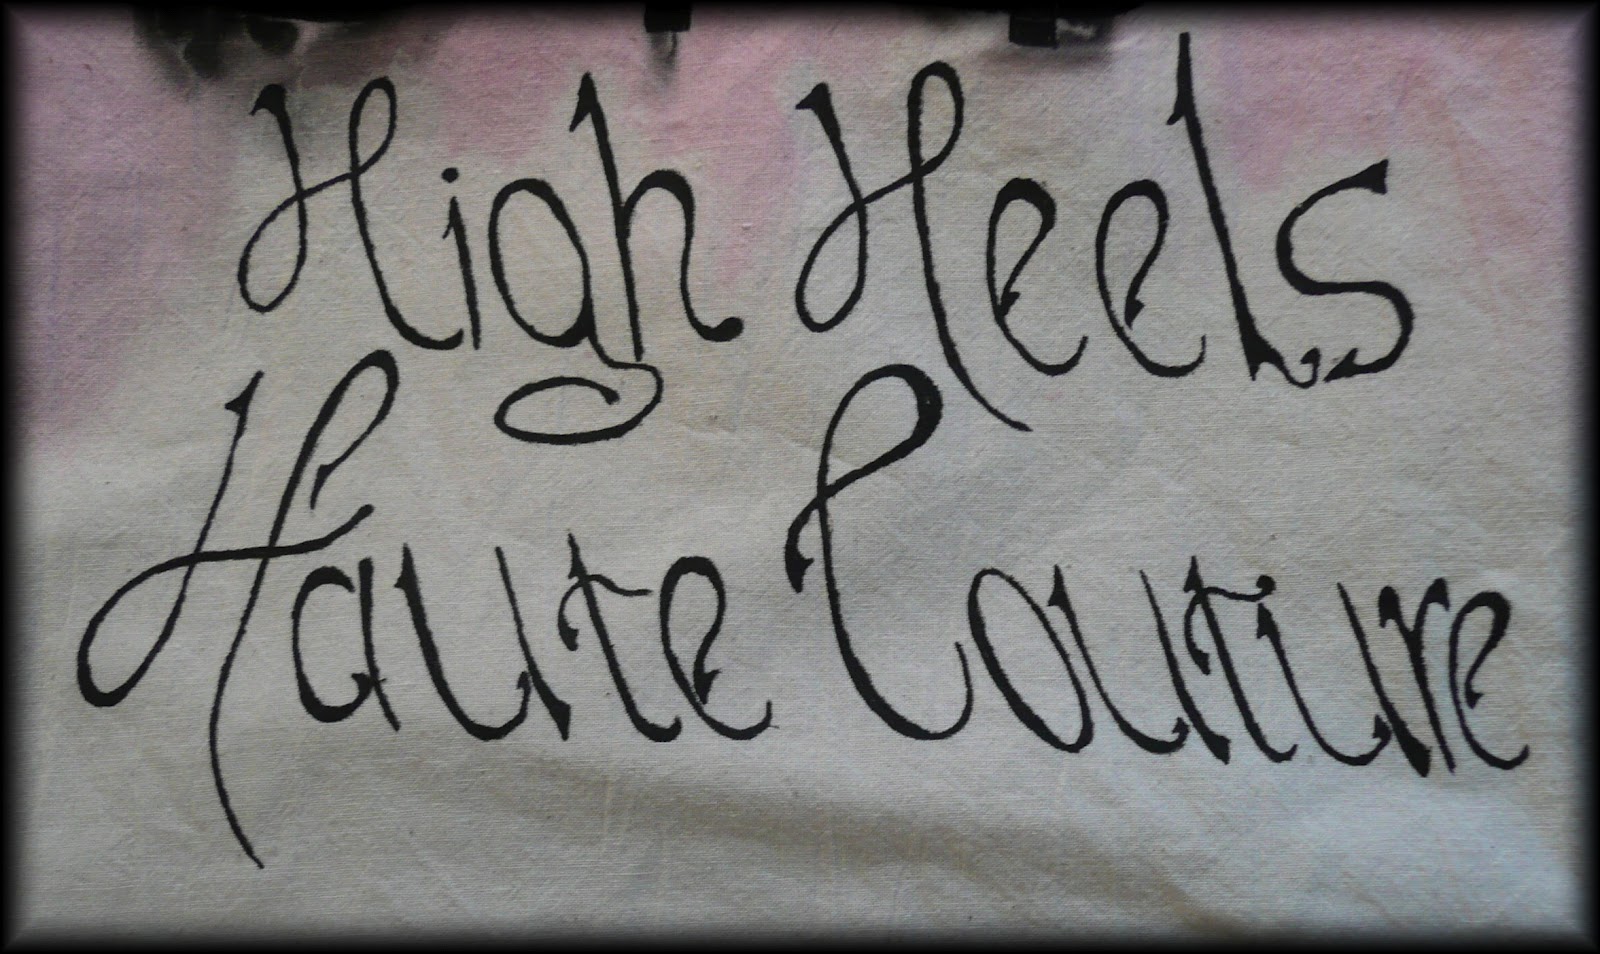 High Heels
Haute Couture